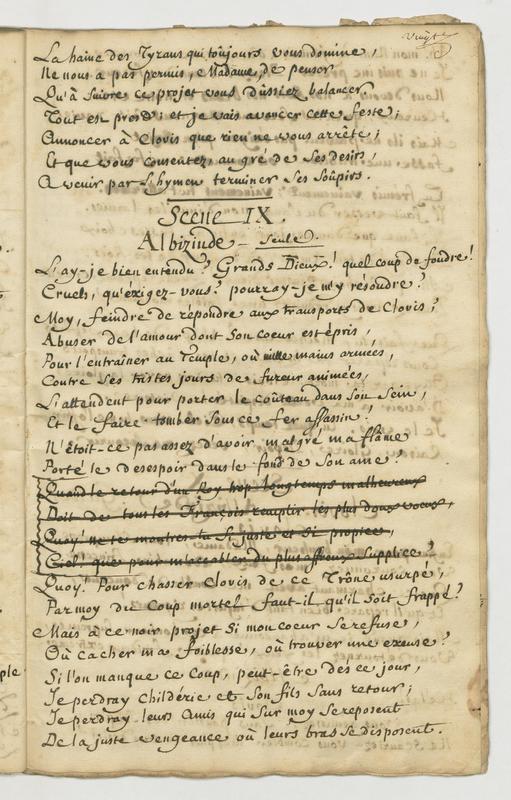 La haine des Tyrans qui toujours vous domine,
Ne nous a pas permis, Madame, de penser
Qu'à suivre ce projet vous dussiez balancer
Tout est prest; et je vais avancer cette feste;
Annoncer à Clovis que rien ne vous arrête;
Et que vous consentez, au gré de ses desirs,
A venir par l'hymen terminer ses soûpirs.
Scene IX.
Albizinde - seule.
L'ay-je bien entendu? Grands Dieux! quel coup de foudre!
Cruels, qu'éxigez-vous? pourray-je m'y résoudre?
Moy, feindre de répondre aux transports de Clovis;
Abuser de l'amour dont son coeur est épris,
Pour l'entraîner au Temple, où mille mains armées,
Contre ses tristes jours de fureur animées,
L'attendent pour porter le coûteau dans son sein,
Et le faire tomber sous ce fer assassin!
N'étoit-ce pas assez d'avoir malgré ma flâme
Porté le desespoir dans le fond de son ame?
Quand le retour d'un Roy trop longtemps malheureux
Doit de tous les François remplir les plus doux voeux,
Quoy! ne te montres-tu si juste et si propice,
Ciel! que pour m'accabler du plus affreux supplice?
Quoy! Pour chasser Clovis de ce Trône usurpé,
Par moy du Coup mortel faut-il qu'il soit frappé?
Mais à ce noir projet si mon coeur se refuse,
Où cacher ma foiblesse, où trouver une excuse?
Si l'on manque ce Coup, peut-être dès ce jour,
Je perdray Childeric et son fils sans retour;
Je perdray leurs Amis qui sur moy se reposent
De la juste vengeance où leurs bras se disposent.
ple